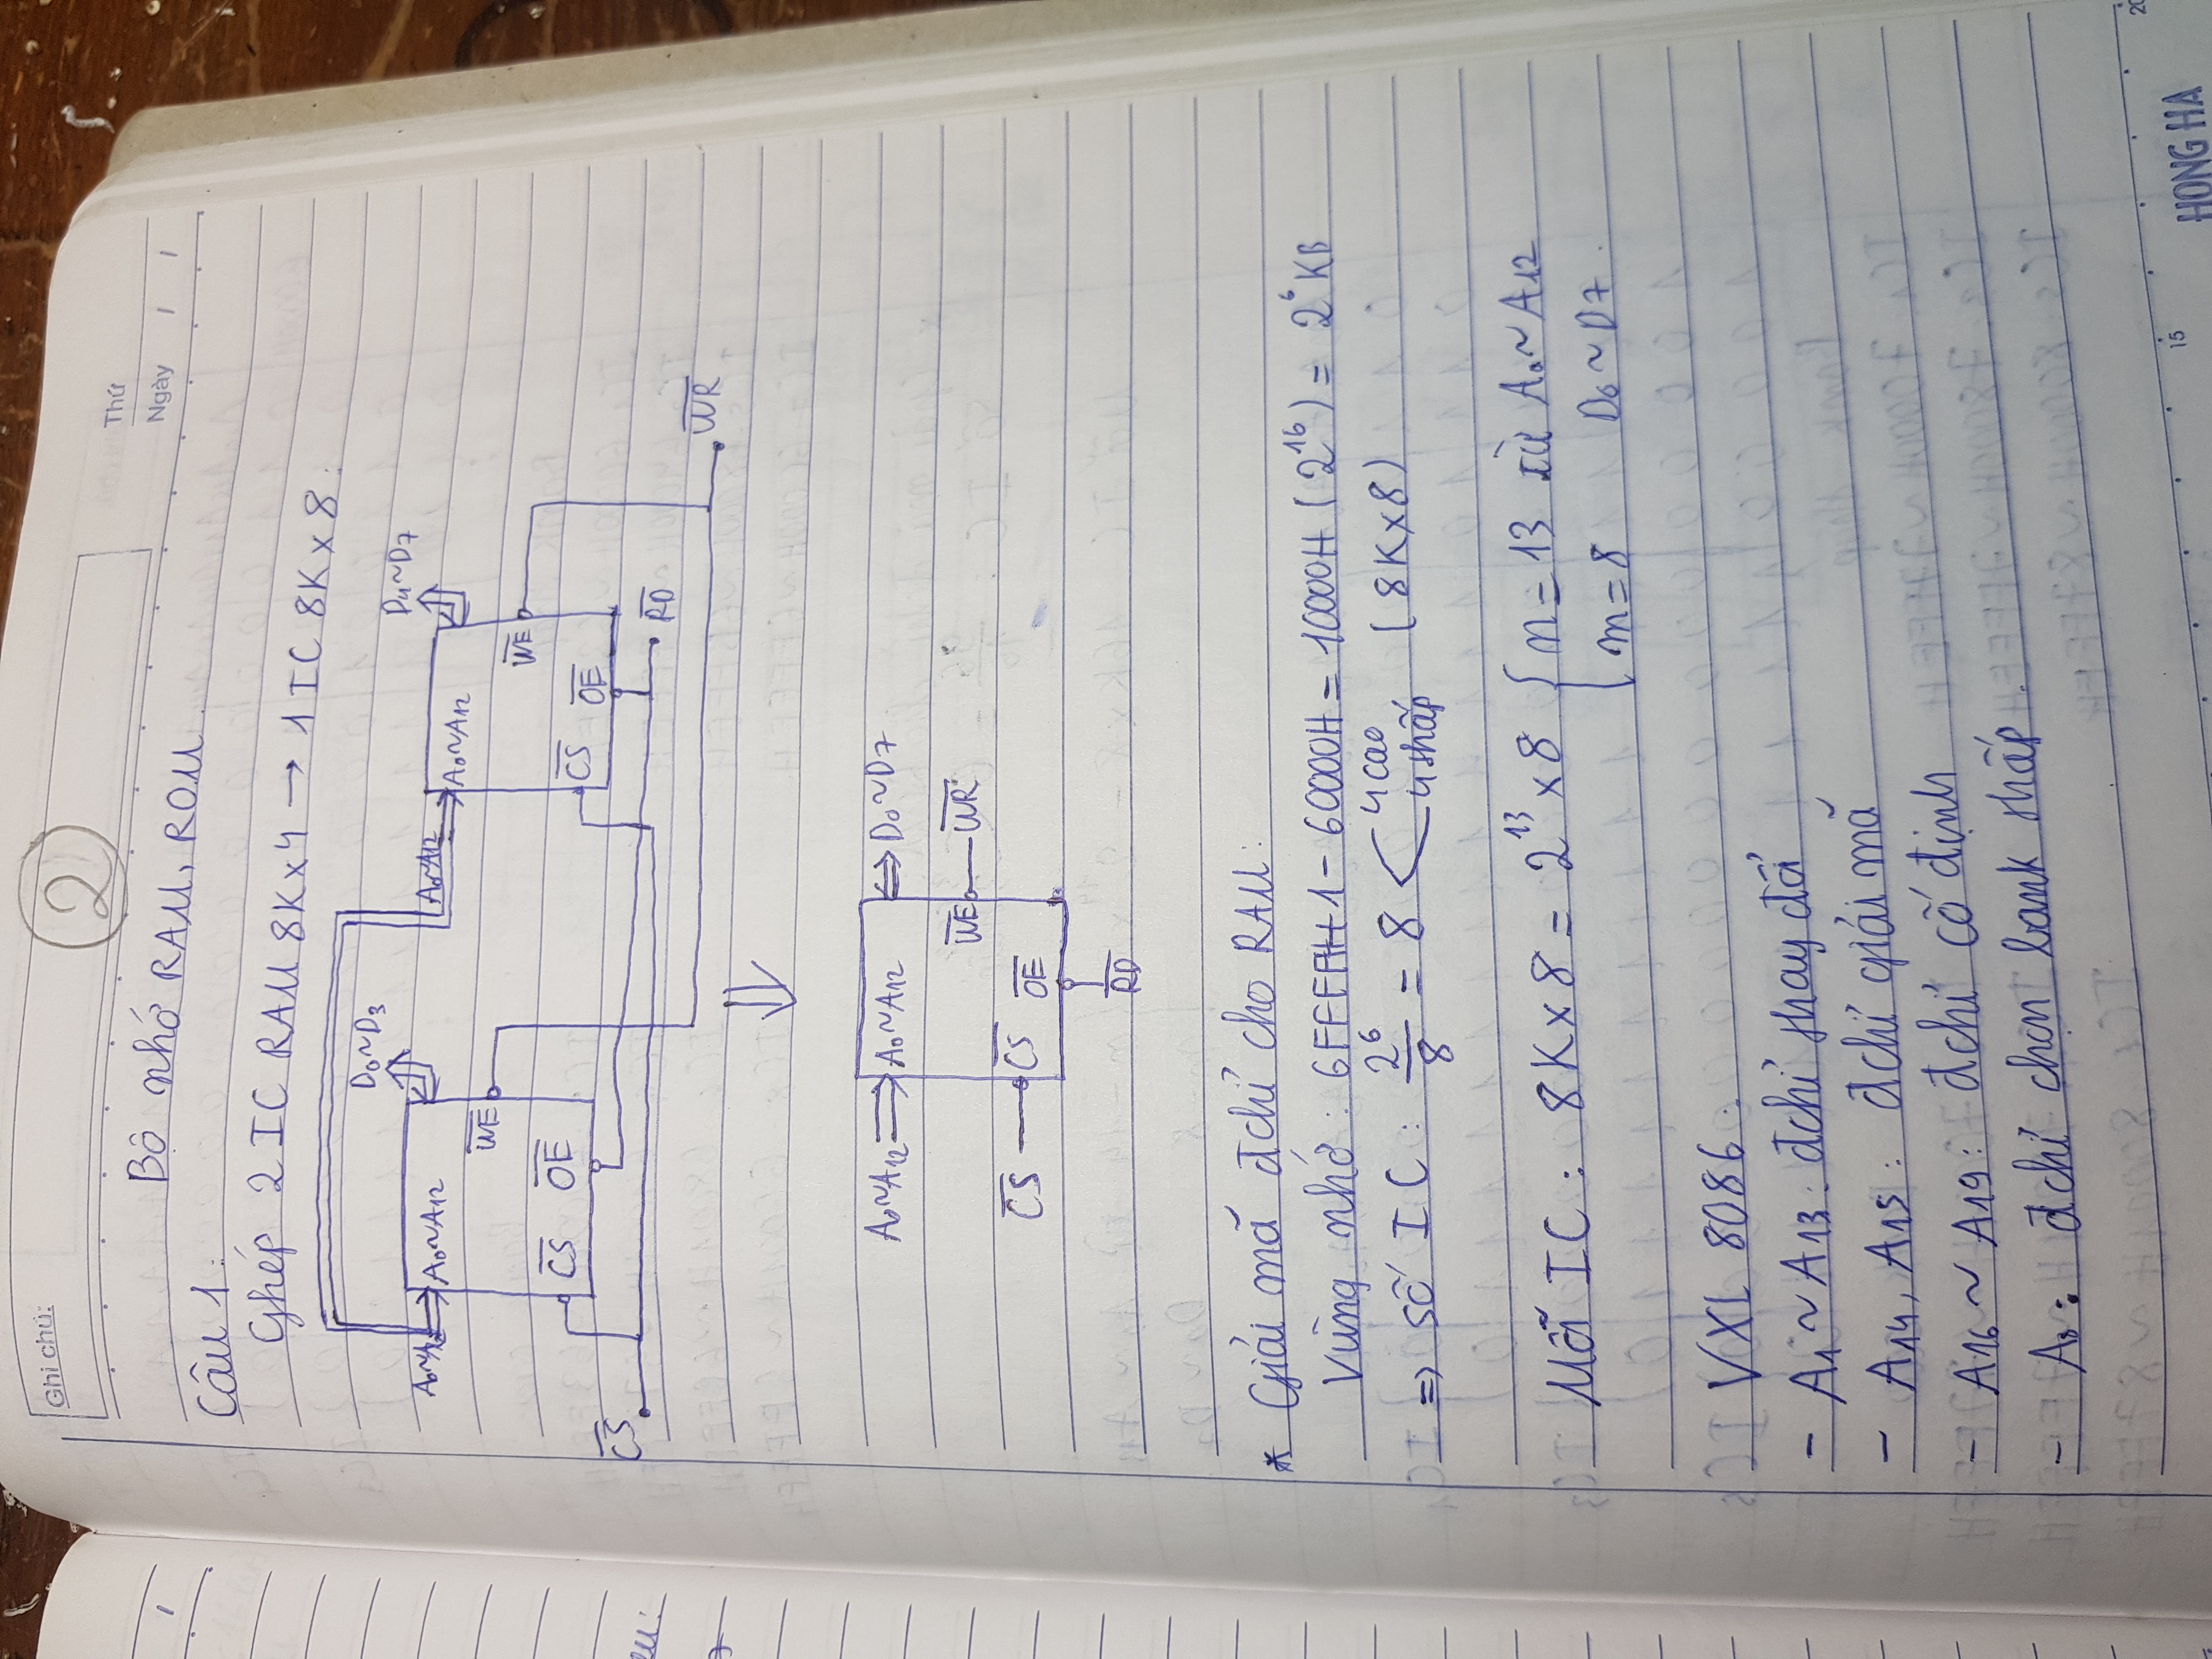 Ghi chú:
2
Thứ
Ngày / /
Bộ nhớ RAM, ROM.
Câu 1:
Ghép 2 IC RAM 8K x 4 → 1 IC 8K x 8:
D0~D3
D4~D7
A0~A12
A0~A12
A0~A12
W̅E̅
W̅E̅
C̅S̅ O̅E̅
C̅S̅ O̅E̅
C̅S̅
R̅D̅
W̅R̅
A0~A12 A0~A12 D0~D7
W̅E̅ W̅R̅
C̅S̅ C̅S̅ O̅E̅
R̅D̅
* Giải mã đchỉ cho RAM:
Vùng nhớ: 6FFFFH+1 - 60000H = 10000H (2^16) = 2^6 KB
=> Số IC: 2^6/8 = 8 < 4 cao 4 thấp (8K x 8)
Mỗi IC: 8K x 8 = 2^13 x 8 { n = 13 từ A0 ~ A12
m = 8 D0 ~ D7.
VXL 8086:
- A1 ~ A13: đchỉ thay đổi
- A14, A15: đchỉ giải mã
- A16 ~ A19: đchỉ cố định
- A0: đchỉ chọn bank thấp.
15
20
HONG HA